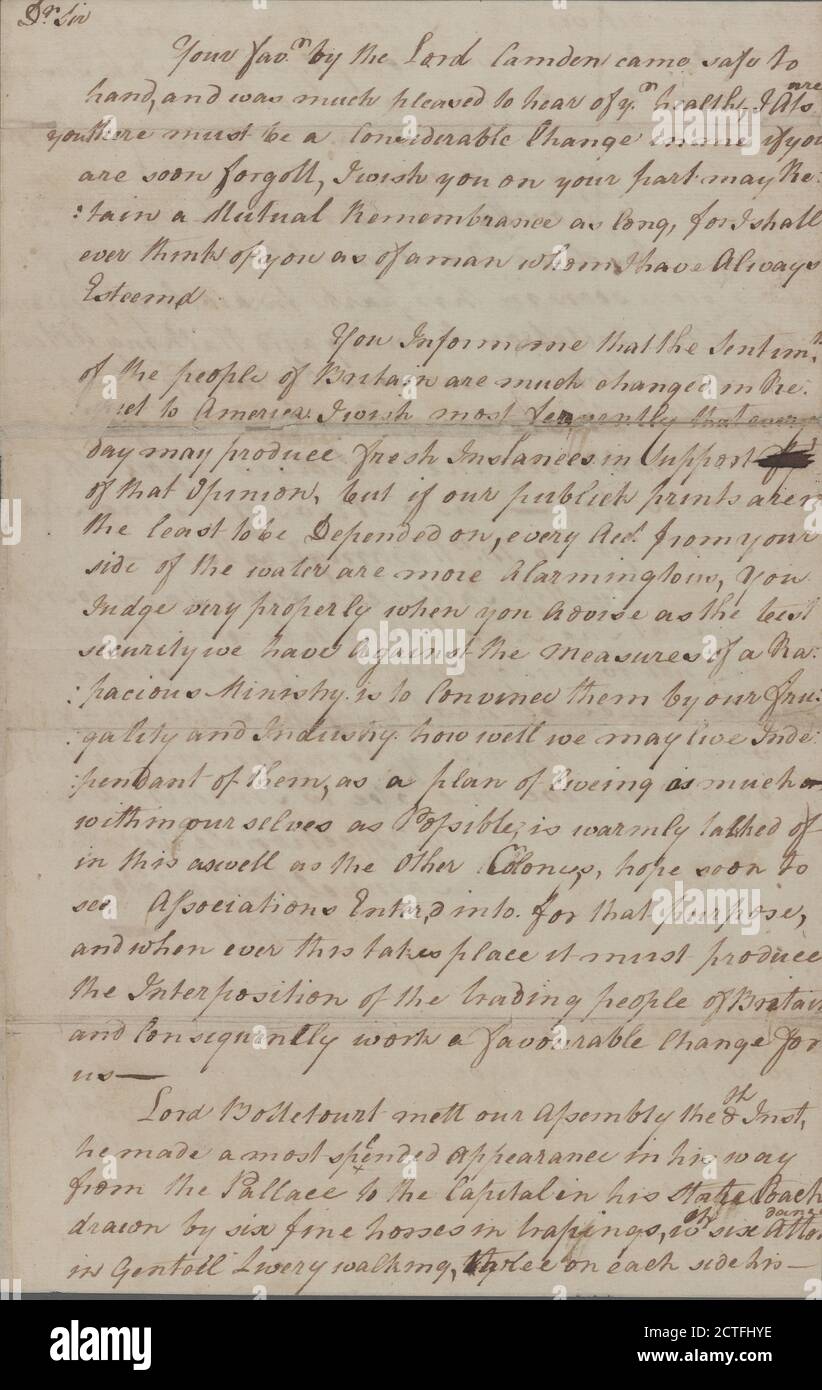 Dr. Sir
Your favr. by the Lord Camden came safe to
hand, and was much pleased to hear of yr. health, I Als
are
you there must be a Considerable Change in me if you
are soon forgott, I wish you on your part may Re:
:tain a Mutual Remembrance as long, for I shall
ever think of you as of a man whom I have Always
Esteemd
You Inform me that the Sentimts.
of the people of Britain are much changed in Re:
to America. I wish most fervently that every
day may produce fresh Instances in Support
of that Opinion, but if our publick prints are in
the least to be Depended on, every Acct. from your
side of the water are more Alarming to us, You
Judge very properly when you advise as the best
security we have Against the Measures of a Ra:
:pacious Ministry is to Convince them by our fru:
:gality and Industry how well we may live Inde:
:pendant of them, as a plan of liveing as much
within ourselves as Possible, is warmly talked of
in this aswell as the Other Colonys, hope soon to
see Associations Enter,d into for that purpose,
and when ever this takes place it must produce
the Interposition of the trading people of Britain
and Consequently work a favourable Change for
us—
Lord Bottetourt mett our Assembly the 8th Inst,
he made a most splended appearance in his way
from the Pallace to the Capital in his State Coach
drawn by six fine horses in trapings, wth six Atten
dance
in Gentell Livery walking, three on each side his—
alamy
Image ID: 2CTFHYE
www.alamy.com